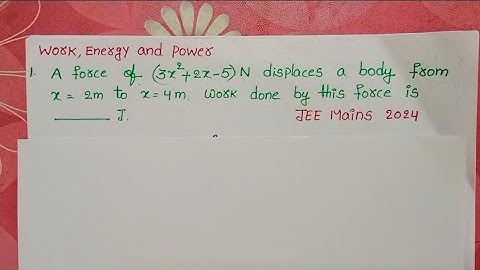 Work, Energy and Power
1. A force of (3x²+2x-5) N displaces a body from
x = 2m to x = 4m. Work done by this force is
______ J. JEE Mains 2024